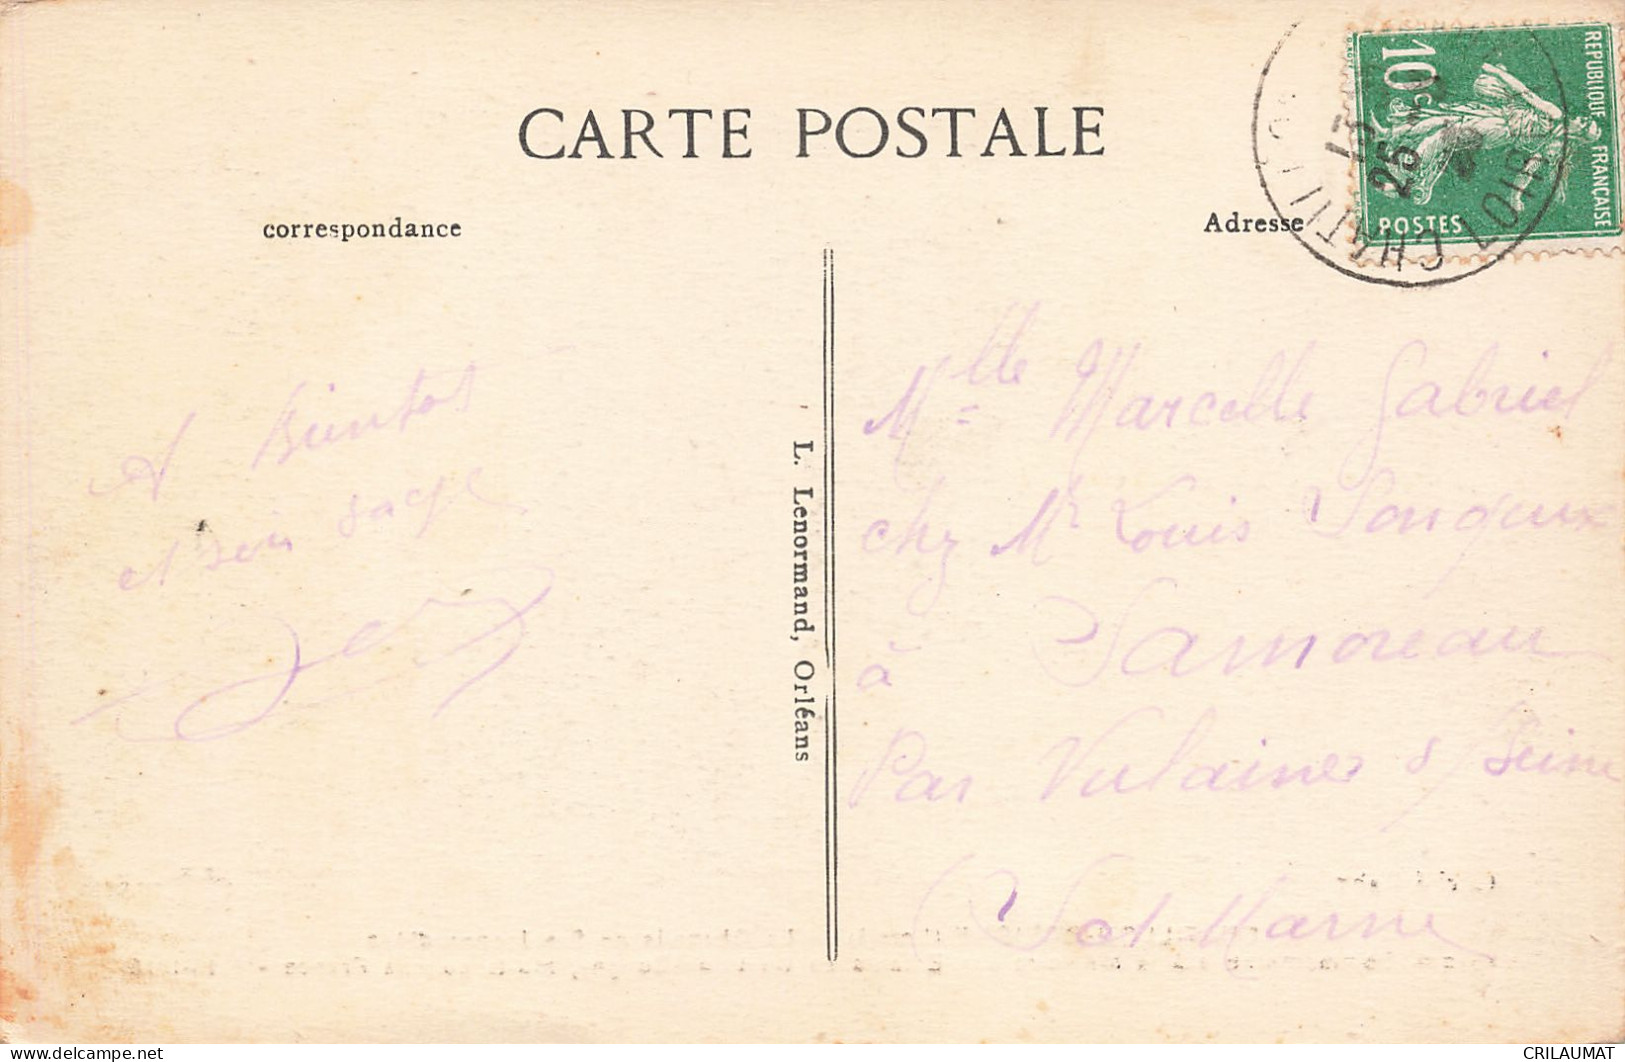 CARTE POSTALE
correspondance
Adresse
REPUBLIQUE FRANÇAISE
10c
POSTES
CHATILLON
LOIRET
13
25
A Bientot
et sois sage
L. Lenormand, Orléans
Mlle Marcelle Gabriel
chez Mr Louis
à Samoreau
Par Vulaines s/ Seine
Set Marne
delcampe.net
CRILAUMAT